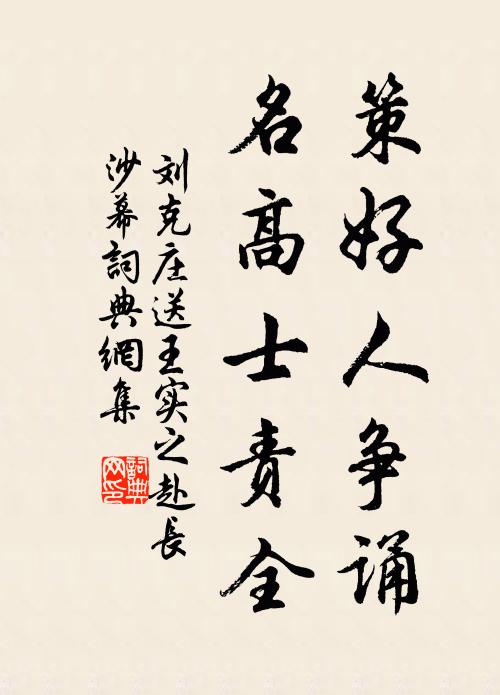 策好人争诵
名高士责全
刘克庄送王实之赴长
沙幕詞典網集
詞典网印